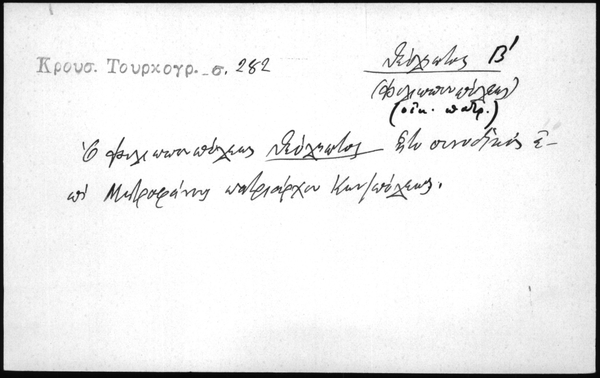 Κρουσ. Τουρκογρ. σ. 282
Θεόληπτος Β'
(Φιλιππουπόλεως)
(οἰκ. πατρ.)
Ὁ Φιλιππουπόλεως Θεόληπτος ἦτο συνοδικός ἐ-
πί Μητροφάνους πατριάρχου Κων/πόλεως.